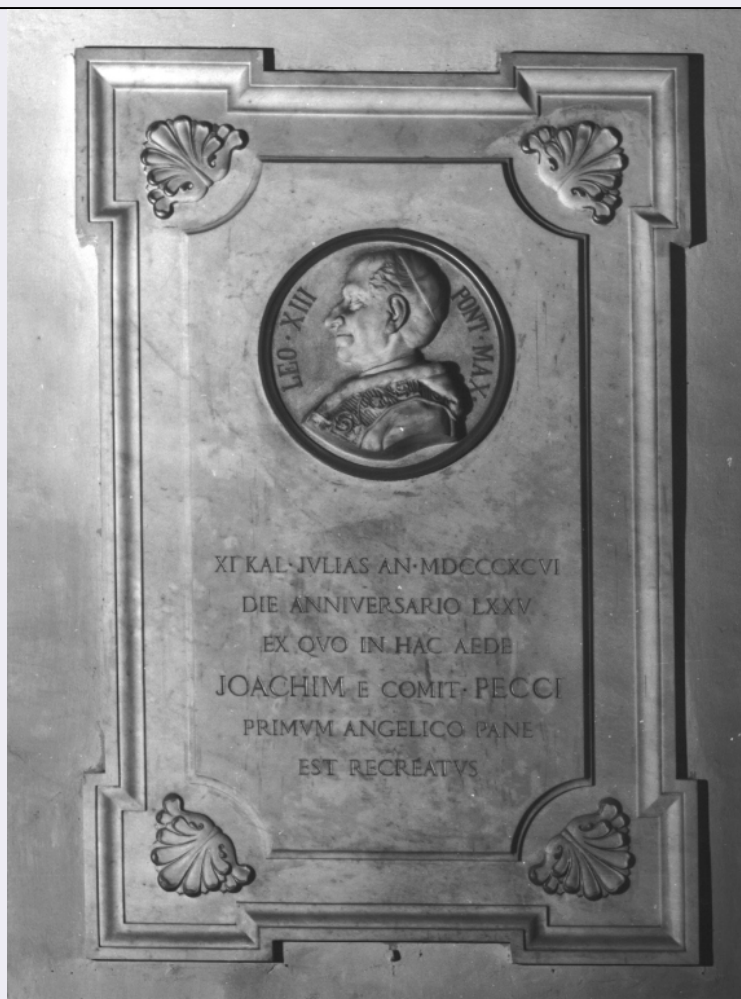 LEO · XIII PONT · MAX
XI KAL · IVLIAS AN · MDCCCXCVI
DIE ANNIVERSARIO LXXV
EX QVO IN HAC AEDE
JOACHIM E COMIT · PECCI
PRIMVM ANGELICO PANE
EST RECREATVS